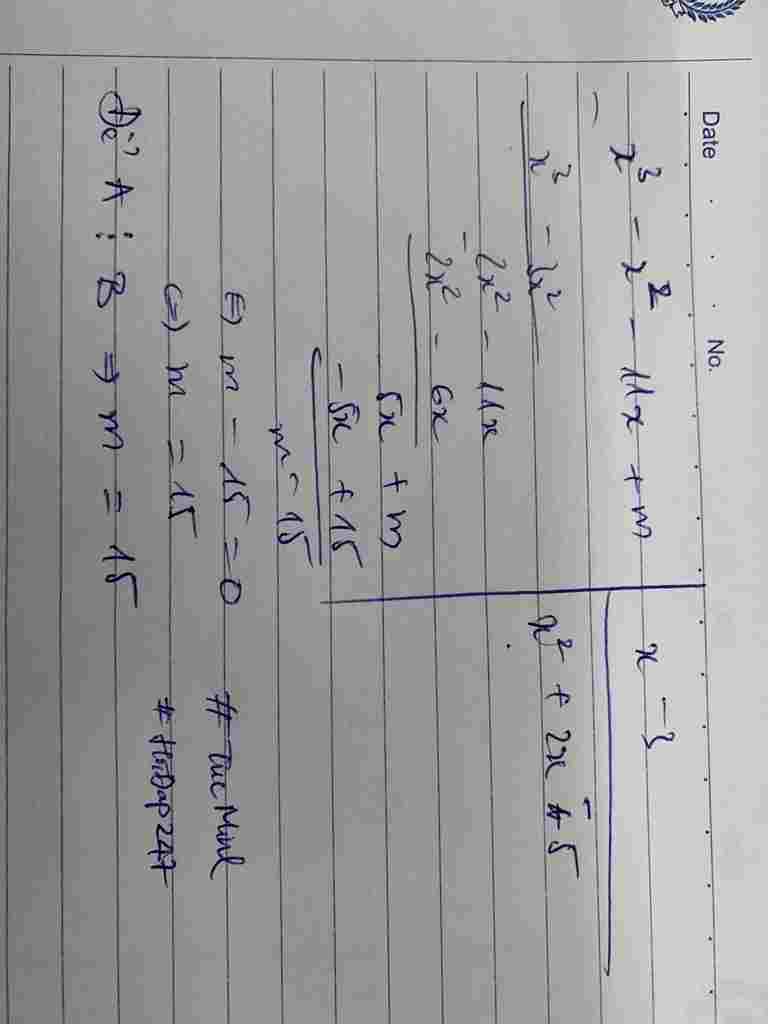 Date . . . No.
x³ - x² - 11x + m | x - 3
x³ - 3x² | x² + 2x - 5
2x² - 11x
2x² - 6x
5x + m
-5x + 15
m - 15
(=) m - 15 = 0
(=) m = 15
Để A ⋮ B => m = 15
#HoiDap247